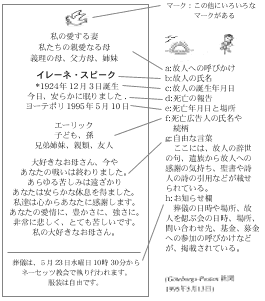 マーク：この他にいろいろな
マークがある
私の愛する妻
私たちの親愛なる母
義理の母、父方母、姉妹
イレーネ・スピーク
*1924年12月3日誕生
今日、安らかに眠りました、
ヨーテボリ1995年5月10日
エーリック
子ども、孫
兄弟姉妹、親類、友人
大好きなお母さん、今や
あなたの戦いは終わりました。
あらゆる苦しみは遠ざかり
あなたは安らかな休息を得ました。
私達は心からあなたに感謝します。
あなたの愛情に、豊かさに、強さに。
非常に悲しく、とても苦しいです。
私の大好きなお母さん。
葬儀は、5月23日水曜日10時30分から
ネーセッツ教会で執り行われます。
服装は自由です。
a:故人への呼びかけ
b:故人の氏名
c:故人の誕生年月日
d:死亡の報告
e:死亡年月日と場所
f:死亡広告人の氏名や
続柄
g:自由な言葉
ここには、故人の辞世
の句、遺族から故人への
感謝の気持ち、聖書や詩
人の詩の引用などが載せ
られている。
h:お知らせ欄
葬儀の日時や場所、故
人を偲ぶ会の日時、場所、
問い合わせ先、基金、募金
への参加の呼びかけなど
が、掲載されている。
(Göteborgs-Posten 新聞
1995年5月13日)